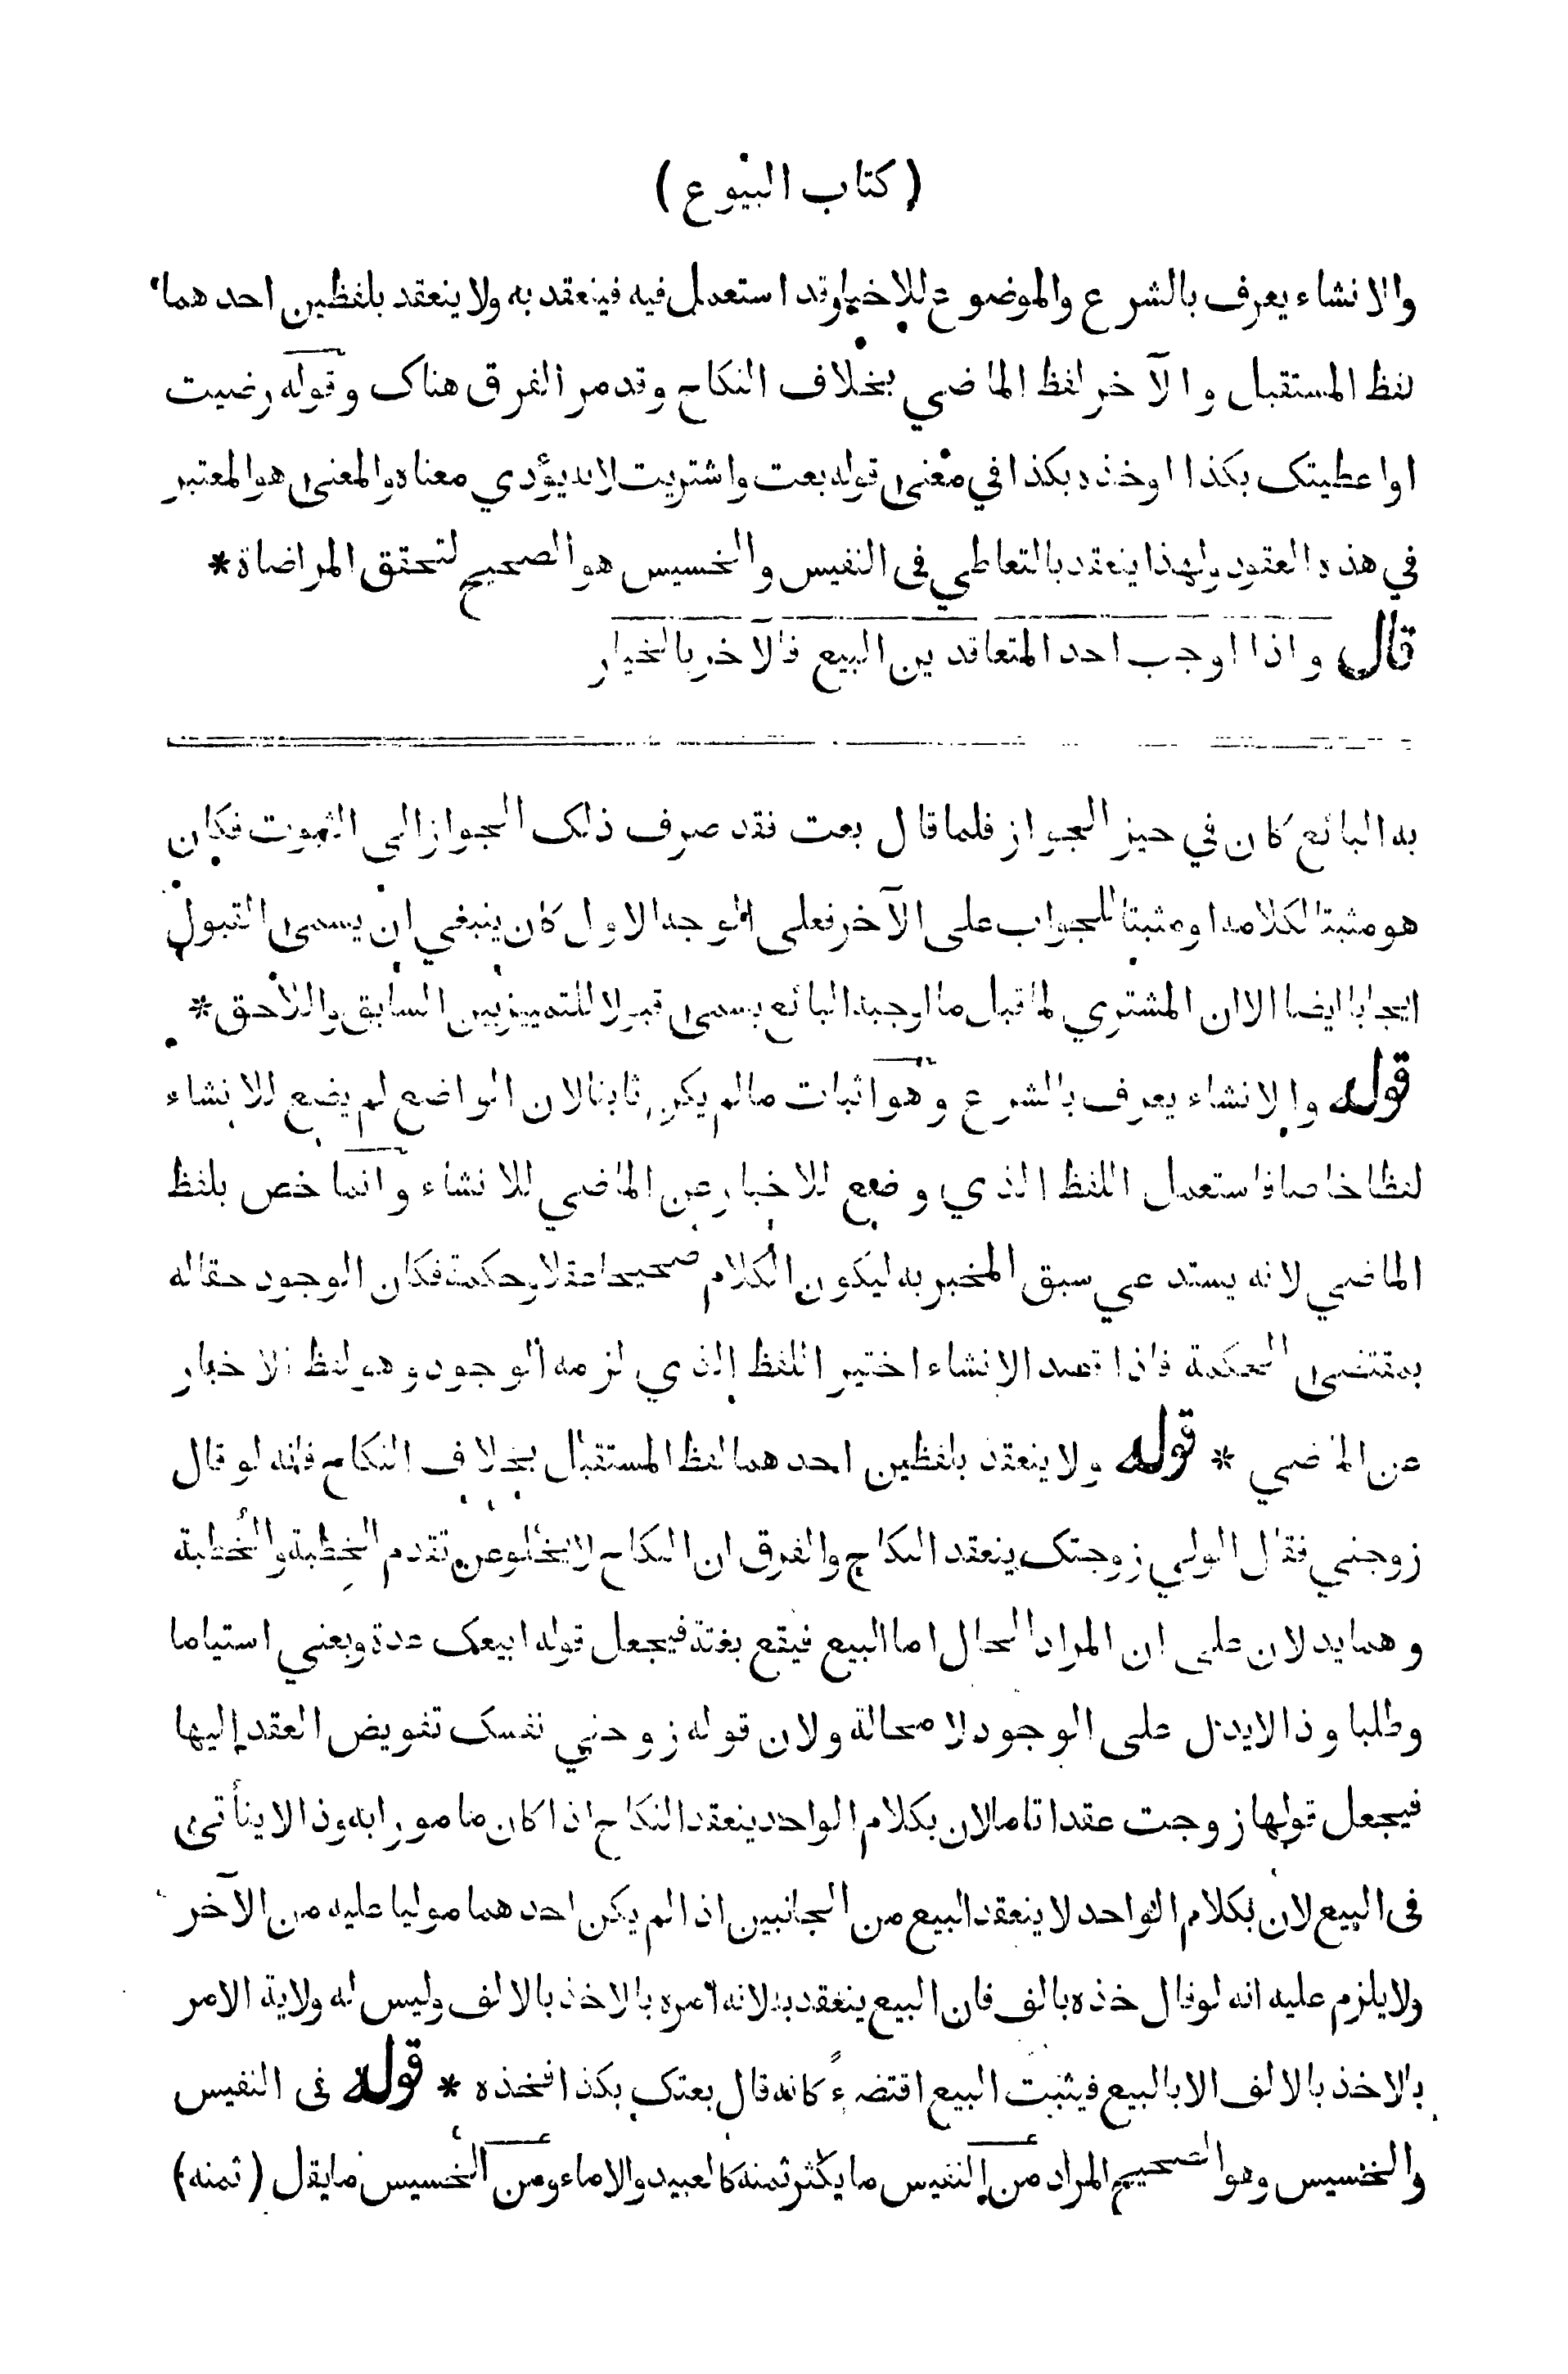 ( كتاب البيوع )
والانشاء يعرف بالشرع والموضوع للاخبار قد استعمل فيه فينعقد به ولا ينعقد بلفظين احدهما
لفظ المستقبل والآخر لفظ الماضي بخلاف النكاح وقد مر الفرق هناك وقوله رضيت
او اعطيتك بكذا او خذه بكذا في معنى قوله بعت واشتريت لانه يؤدي معناه والمعنى هو المعتبر
في هذه العقود ولهذا ينعقد بالتعاطي في النفيس والخسيس هو الصحيح لتحقق المراضاة *
قال واذا اوجب احد المتعاقدين البيع فالآخر بالخيار
به البائع كان في حيز الجواز فلما قال بعت فقد صرف ذلك الجواز الى الثبوت فكان
هو مثبتا لكلامه او مثبتا للجواب على الآخر فعلى الوجه الاول كان ينبغي ان يسمى القبول
ايجابا ايضا الا ان المشتري لما قبل ما اوجبه البائع يسمى قبولا للتمييز بين السابق واللاحق *
قوله والانشاء يعرف بالشرع وهو اثبات مالم يكن ثابتا لان الواضع لم يضع للانشاء
لفظا خاصا فاستعمل اللفظ الذي وضع للاخبار عن الماضي للانشاء وانما خص بلفظ
الماضي لانه يستدعي سبق المخبر به ليكون الكلام صحيحا عقلا وحكمة فكان الوجود حقا له
بمقتضى الحكمة فاذا قصد الانشاء اختير اللفظ الذي لزمه الوجود وهو لفظ الاخبار
عن الماضي * قوله ولا ينعقد بلفظين احدهما لفظ المستقبل بخلاف النكاح فانه لو قال
زوجني فقال الولي زوجتك ينعقد النكاح والفرق ان النكاح لا يخلو عن تقدم الخِطبة والخُطبة
وهما يدلان على ان المراد الحال اما البيع فيقع بغتة فيجعل قوله ابيعك عدة وبعني استياما
وطلبا وذا لايدل على الوجود لا محالة ولان قوله زوجني نفسك تفويض العقد إليها
فيجعل قولها زوجت عقدا تاما لان بكلام الواحد ينعقد النكاح اذا كان مامورا به وذا لا يتأتى
في البيع لان بكلام الواحد لا ينعقد البيع من الجانبين اذا لم يكن احدهما موليا عليه من الآخر
ولا يلزم عليه انه لو قال خذه بالف فان البيع ينعقد به لانه امره بالاخذ بالالف وليس له ولاية الامر
بالاخذ بالالف الا بالبيع فيثبت البيع اقتضاءً كانه قال بعتك بكذا فخذه * قوله في النفيس
والخسيس وهو الصحيح المراد من النفيس ما يكثر ثمنه كالعبيد والاماء ومن الخسيس ما يقل ( ثمنه )